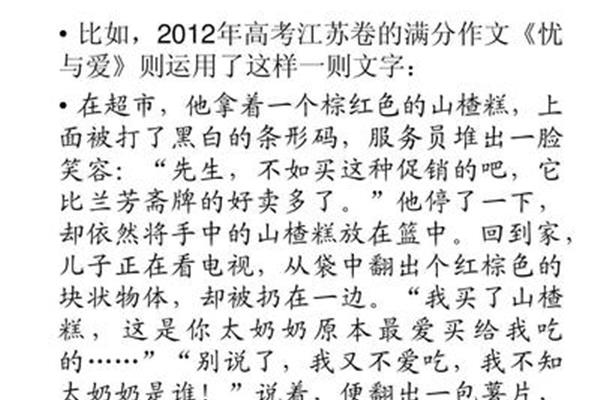 • 比如，2012年高考江苏卷的满分作文《忧
与爱》则运用了这样一则文字：
• 在超市，他拿着一个棕红色的山楂糕，上
面被打了黑白的条形码，服务员堆出一脸
笑容：“先生，不如买这种促销的吧，它
比兰芳斋牌的好卖多了。”他停了一下，
却依然将手中的山楂糕放在篮中。回到家，
儿子正在看电视，从袋中翻出个红棕色的
块状物体，却被扔在一边。“我买了山楂
糕，这是你太奶奶原本最爱买给我吃
的……”“别说了，我又不爱吃，我不知
太奶奶是谁！”说着，便翻出一包薯片，